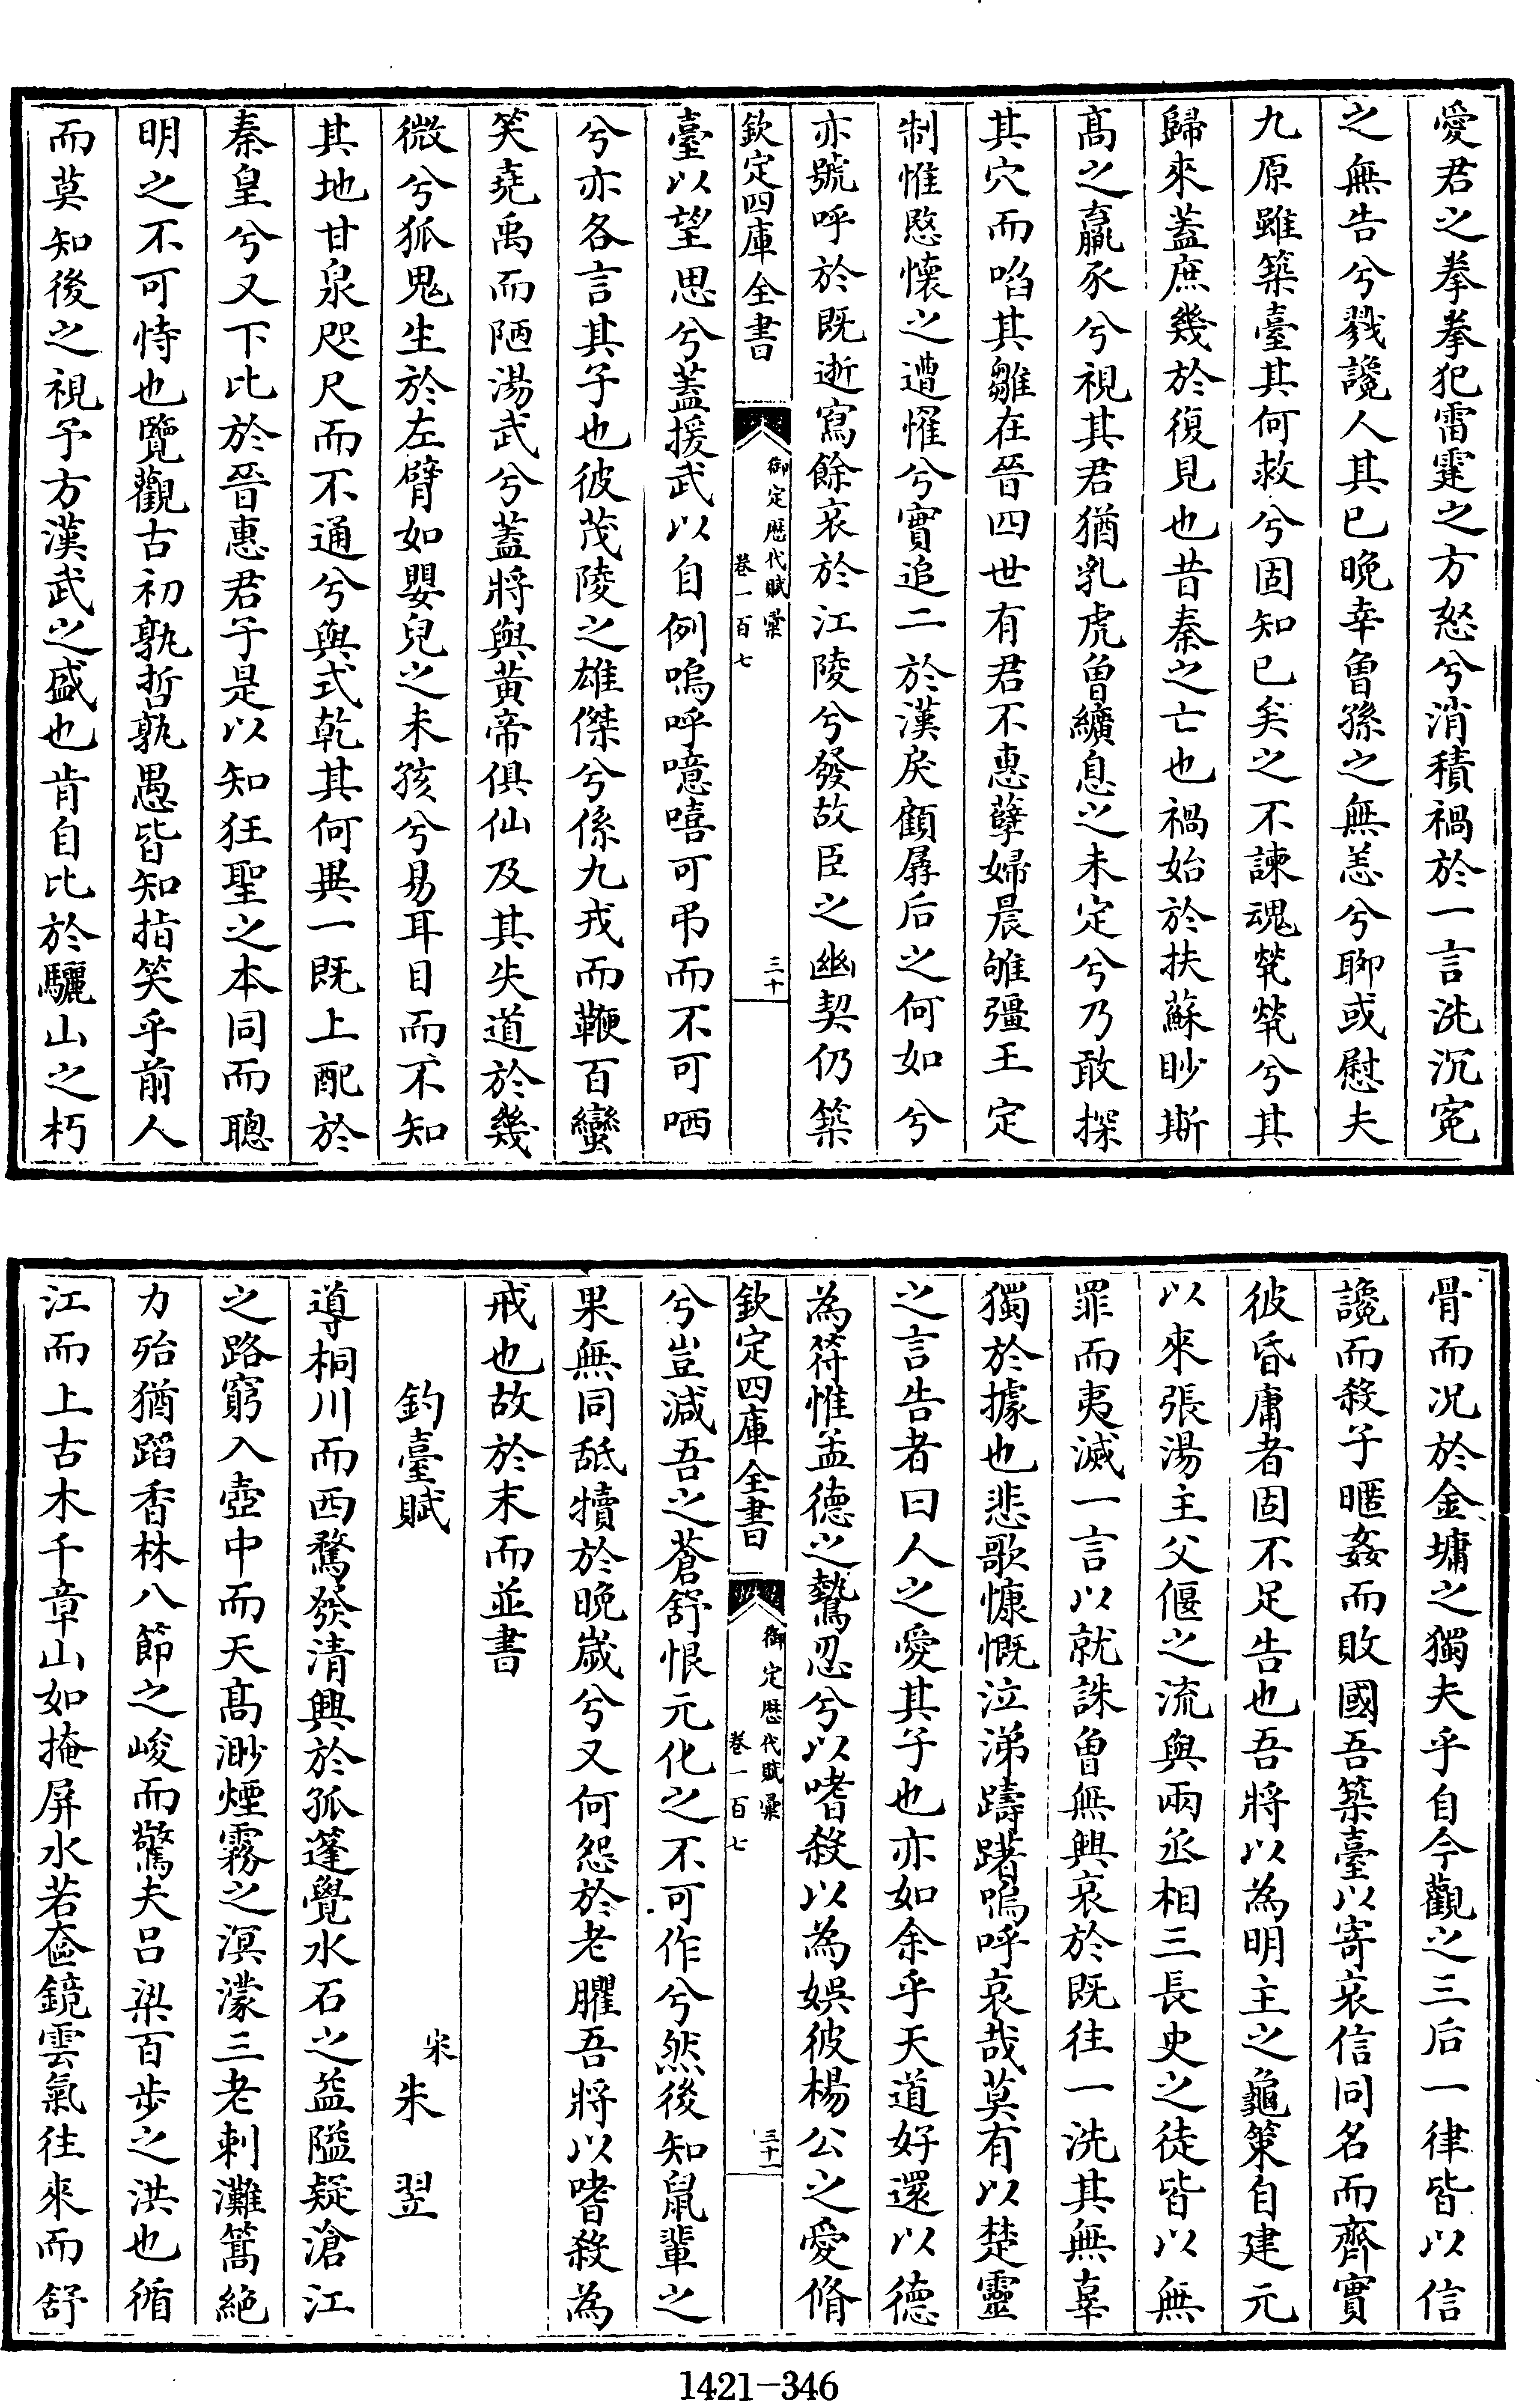 愛君之拳拳犯雷霆之方怒兮消積禍於一言洗沉寃
之無告兮戮讒人其已晚幸曾孫之無恙兮聊或慰夫
九原雖築臺其何救兮固知已矣之不諫魂煢煢兮其
歸來蓋庶幾於復見也昔秦之亡也禍始於扶蘇眇斯
髙之羸豕兮視其君猶乳虎曾纊息之未定兮乃敢探
其穴而啗其雛在晉四世有君不惠孽婦晨雊彊王定
制惟愍懷之遭罹兮實追二於漢戾顧孱后之何如兮
亦號呼於既逝寫餘哀於江陵兮發故臣之幽契仍築
欽定四庫全書
御定歴代賦彚
卷一百七
三十
臺以望思兮蓋援武以自例嗚呼噫嘻可弔而不可哂
兮亦各言其子也彼茂陵之雄傑兮係九戎而鞭百蠻
笑堯禹而陋湯武兮蓋將與黄帝俱仙及其失道於幾
微兮狐鬼生於左臂如嬰兒之未孩兮易耳目而不知
其地甘泉咫尺而不通兮與式乾其何異一既上配於
秦皇兮又下比於晉惠君子是以知狂聖之本同而聰
明之不可恃也覽觀古初孰哲孰愚皆知指笑乎前人
而莫知後之視予方漢武之盛也肯自比於驪山之朽
骨而况於金墉之獨夫乎自今觀之三后一律皆以信
讒而殺子暱姦而敗國吾築臺以寄哀信同名而齊實
彼昏庸者固不足告也吾將以為明主之龜策自建元
以來張湯主父偃之流與兩丞相三長史之徒皆以無
罪而夷滅一言以就誅曾無興哀於既往一洗其無辜
獨於據也悲歌慷慨泣涕躊躇嗚呼哀哉莫有以楚靈
之言告者曰人之愛其子也亦如余乎天道好還以德
為符惟孟德之鷙忍兮以嗜殺以為娛彼楊公之愛脩
欽定四庫全書
御定歴代賦彚
卷一百七
三十一
兮豈減吾之蒼舒恨元化之不可作兮然後知鼠輩之
果無同舐犢於晚歲兮又何怨於老臞吾將以嗜殺為
戒也故於末而並書
釣臺賦
宋 朱翌
導桐川而西騖發清興於孤蓬覺水石之益隘疑滄江
之路窮入壺中而天髙渺煙霧之溟濛三老刺灘篙絶
力殆猶蹈香林八節之峻而驚夫吕梁百步之洪也循
江而上古木千章山如掩屏水若奩鏡雲氣往來而舒
1421-346